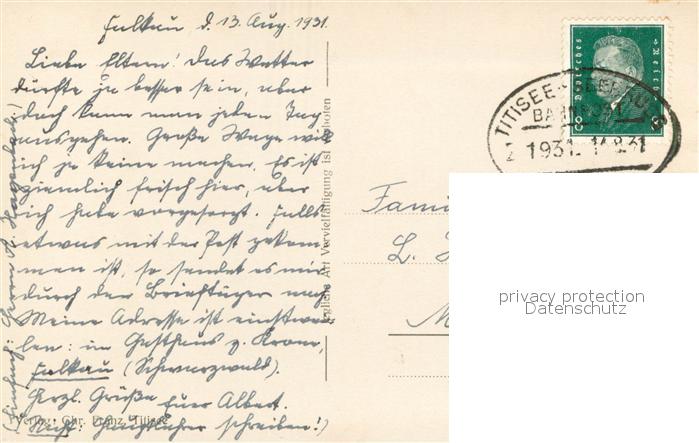 Falkau d. 13. Aug. 1931.
Liebe Eltern! Das Wetter
dürfte zu besser sein, aber
doch kann man jeden Tag
ausgehen. Große Wege will
ich ja keine machen. Es ist
ziemlich frisch hier, aber
ich habe vorgesorgt. Falls
etwas mit der Post gekom-
men ist, so sendet es mir
durch den Briefträger nach
Meine Adresse ist einstwei-
len: im Gasthaus z. Krone,
Falkau (Schwarzwald).
Herzl. Grüße
Euer Albert.
(deutlicher schreiben!)
Herrn A. Hagenbach
Verlag: Chr. Franz, Titisee
Jegliche Art Vervielfältigung ist verboten
Deutsches Reich
8 8
TITISEE-SEEBRUGG
BAHNPOST
Z 1931 14.8.31
Fami
L.
M
privacy protection
Datenschutz